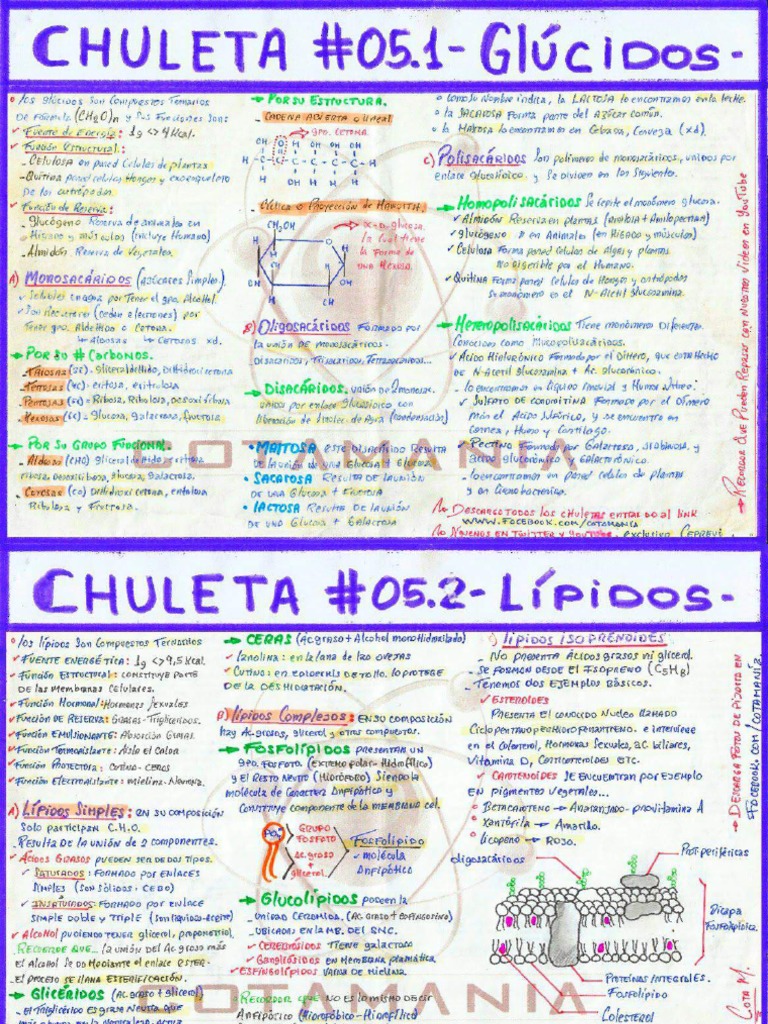 CHULETA #05.1 - Glúcidos -
• los glúcidos son Compuestos Ternarios
de Formula (CH2O)n y sus Funciones son:
✓ Fuente de Energía: 1g <> 4 Kcal.
✓ Función Estructural:
- Celulosa en pared Celulas de plantas
- Quitina pared celulas Hongos y exoesqueleto
de los artrópodos
✓ Función de Reserva:
- Glucógeno Reserva de animales en
Higado y músculos (incluye Humano)
- Almidón Reserva de Vegetales.
A) MONOSACÁRIDOS (azúcares Simples).
✓ Solubles en agua por Tener el gpo. Alcohol.
✓ Son Reductores (ceden electrones) por
Tener gpo. Aldehido o Cetona.
↳ Aldosas ↳ Cetosas xd.
→ POR SU # CARBONOS.
TRIOSAS (3C): gliceraldehido, DiHidroxicetona
TETROSAS (4C): eritosa, eritrulosa
PENTOSAS (5C): Ribosa, Ribulosa, Desoxiribosa
HEXOSAS (6C): Glucosa, Galactosa, fructosa.
→ POR SU GRUPO FUNCIONAL
Aldosas (CHO) gliceraldehido, eritrosa
ribosa, desoxiribosa, glucosa, Galactosa.
CETOSAS (CO) DiHidroxicetona, eritrulosa
Ribulosa y Fructosa.
→ POR SU ESTRUCTURA.
CADENA ABIERTA o lineal
gpo. CETONA.
CÍCLICA o PROYECCIÓN DE HAWORTH.
CH2OH
α-D-glucosa.
la cual tiene
la Forma de
una Hexosa.
B) Oligosacáridos Formados por
la unión de monosacáridos.
DISACÁRIDOS, TRISACÁRIDOS, TETRASACARIDOS...
→ DISACÁRIDOS: unión de 2 monosac.
unidos por enlace Glucosídico con
liberación de 1 molec. de Agua (condensación)
• MALTOSA este disacárido Resulta
de la unión de una Glucosa + Glucosa
• SACAROSA Resulta de la unión
de una Glucosa + Fructosa
• LACTOSA Resulta de la unión
de una Glucosa + Galactosa
• Como su nombre indica, la LACTOSA lo encontramos en la leche.
• la SACAROSA Forma parte del azúcar común.
• la Maltosa lo encontramos en Cebada, Cerveza (xd).
C) Polisacáridos Son polimeros de monosacáridos, unidos por
enlace glucosídico, y se dividen en los siguientes.
→ HOMOPOLISACÁRIDOS Se repite el monómero glucosa.
✓ Almidón Reserva en plantas (Amilosa + Amilopectina)
✓ glucógeno " en Animales (en Higado y músculos)
✓ Celulosa Forma pared Celulas de Algas y plantas
No digerible por el Humano.
✓ Quitina Forma pared Celulas de Hongos y artrópodos
su monómero es el N-Acetil Glucosamina.
→ HETEROPOLISACÁRIDOS Tiene monómeros Diferentes
Conocidos como Mucopolisacáridos.
✓ ÁCIDO HIALURÓNICO Formado por el Dímero, que esta Hecho
de N-Acetil Glucosamina + Ac. Glucorónico.
- lo encontramos en Liquido Sinovial y Humor Vitreo.
✓ SULFATO DE CONDROITINA Formado por el Dímero
más el Acido Sulfúrico, y se encuentra en
Cornea, Hueso y Cartílago.
✓ PECTINA Formada por Galactosa, arabinosa, y
acido glucorónico y Galacturónico.
- lo encontramos en pared celulas de plantas
y en Cianobacterias.
DESCARGA TODOS LAS CHULETAS ENTRANDO AL LINK
www.Facebook.com/cotamania
Y SIGUENOS EN TWITTER Y YOUTUBE, exclusivo CEPREVI.
→ RECUERDEN QUE PUEDEN REPASAR CON NUESTROS VIDEOS EN YOUTUBE
COTAMANIA
CHULETA #05.2 - Lípidos -
• los lípidos son Compuestos Ternarios
✓ FUENTE ENERGÉTICA: 1g <> 9,5 Kcal.
✓ Función ESTRUCTURAL: CONSTITUYE PARTE
de las Membranas Celulares.
✓ Función Hormonal: Hormonas sexuales
✓ Función de RESERVA: Grasas - Triglicéridos.
✓ Función EMULSIONANTE: Absorción Grasas.
✓ Función Termoaislante: Aisla el Calor
✓ Función Protectora: Cutina - ceras
✓ Función Electroaislante: mielina - Neurona.
A) LÍPIDOS SIMPLES: EN SU COMPOSICIÓN
Solo participan C.H.O.
- Resulta de la unión de 2 componentes.
✓ ÁCIDOS GRASOS PUEDEN SER DE DOS TIPOS.
✓ SATURADOS: FORMADO POR ENLACES
SIMPLES (SON SÓLIDOS: CEBO)
✓ INSATURADOS: FORMADO POR ENLACES
SIMPLE DOBLE y TRIPLE (son liquidos - aceite)
✓ Alcohol PUDIENDO TENER glicerol, propanotriol.
RECUERDE QUE... la unión del Ac. graso más
el Alcohol Se da Mediante el enlace ESTER.
el PROCESO SE LLAMA ESTERIFICACIÓN.
→ GLICÉRIDOS (Ac. graso + glicerol)
- El Triglicérido es Grasa Neutra que
→ CERAS (Ac. graso + Alcohol monoHidroxilado)
✓ lanolina: en la lana de las ovejas
✓ Cutina: en epidermis de Tallo. lo protege
de la DESHIDRATACIÓN.
B) lípidos Complejos: EN SU COMPOSICIÓN
Hay Ac. grasos, glicerol y otros compuestos.
→ FOSFOLÍPIDOS PRESENTAN UN
gpo. FOSFATO (EXTREMO POLAR - Hidrofílico)
y el RESTO NEUTRO (Hidrófobo) siendo la
molécula de Caracter Anfipático y
CONSTITUYE COMPONENTE DE LA MEMBRANA cel.
PO4
GRUPO
FOSFATO
Ac. graso
+
glicerol
FOSFOLÍPIDO
- molécula
Anfipática
→ GLUCOLÍPIDOS POSEEN la
- UNIDAD CERAMIDA. (AC. GRASO + ESFINGOSINA)
- UBICADAS EN LA MB. DEL SNC.
✓ CEREBRÓSIDOS TIENE galactosa
✓ GANGLIÓSIDOS EN MEMBRANA plasmática.
✓ ESFINGOLÍPIDOS VAINA DE MIELINA.
- RECORDAR QUE NO ES LO MISMO DECIR
ANFIPÁTICO (Hidrofóbico - Hidrofílico)
C) LÍPIDOS ISOPRENOIDES
- NO PRESENTA ÁCIDOS GRASOS NI glicerol.
- SE FORMAN DESDE EL ISOPRENO (C5H8)
- TENEMOS DOS EJEMPLOS BÁSICOS.
✓ ESTEROIDES
PRESENTA EL CONOCIDO NUCLEO LLAMADO
Ciclopentanoperhidrofenantreno. e interviene
en el colesterol, Hormonas Sexuales, ac. biliares,
Vitamina D, Corticoteroides etc.
✓ CAROTENOIDES SE ENCUENTRAN POR EJEMPLO
EN PIGMENTOS VEGETALES...
• BETACAROTENO → Anaranjado - provitamina A
• Xantófila → Amarillo.
• licopeno → ROJO.
oligosacáridos
Prot. periféricas
Bicapa
Fosfolipídica
PROTEÍNAS INTEGRALES.
Fosfolípido
COLESTEROL
→ DESCARGA FOTOS DE PIZARRA EN
FACEBOOK.COM/COTAMANIA
COTA M.
COTAMANIA